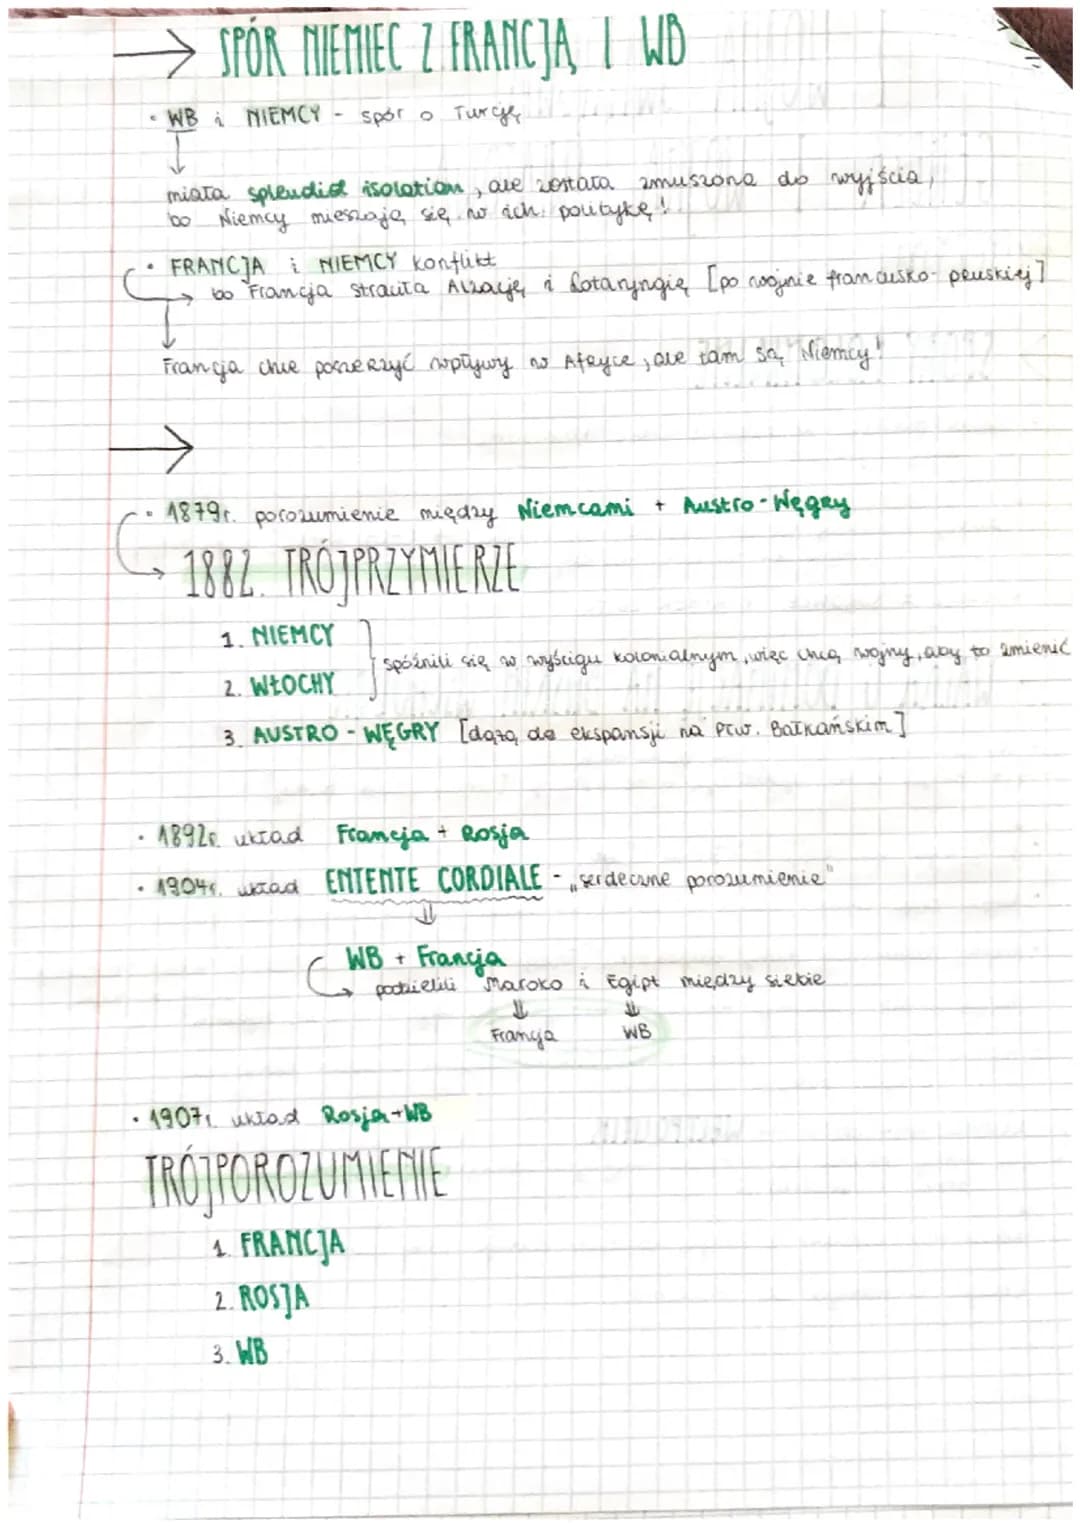 → SPÓR NIEMIEC Z FRANCJĄ I WB
• WB i NIEMCY - spór o Turcję
↓
miała splendid isolation, ale została zmuszona do wyjścia,
bo Niemcy mieszają się w ich politykę!
• FRANCJA i NIEMCY konflikt
↳ bo Francja straciła Alzację i Lotaryngię [po wojnie francusko-pruskiej]
↓
Francja chce poszerzyć wpływy w Afryce, ale tam są Niemcy!
→
• 1879r. porozumienie między Niemcami + Austro-Węgry
↳ 1882. TRÓJPRZYMIERZE
1. NIEMCY
2. WŁOCHY
] spóźnili się w wyścigu kolonialnym, więc chcą wojny, aby to zmienić
3. AUSTRO - WĘGRY [dążą do ekspansji na Płw. Bałkańskim]
• 1892r. układ Francja + Rosja
• 1904r. układ ENTENTE CORDIALE - „serdeczne porozumienie"
⇓
WB + Francja
↳ podzielili Maroko i Egipt między siebie
⇓ ⇓
Francja WB
• 1907r. układ Rosja+WB
TRÓJPOROZUMIENIE
1. FRANCJA
2. ROSJA
3. WB